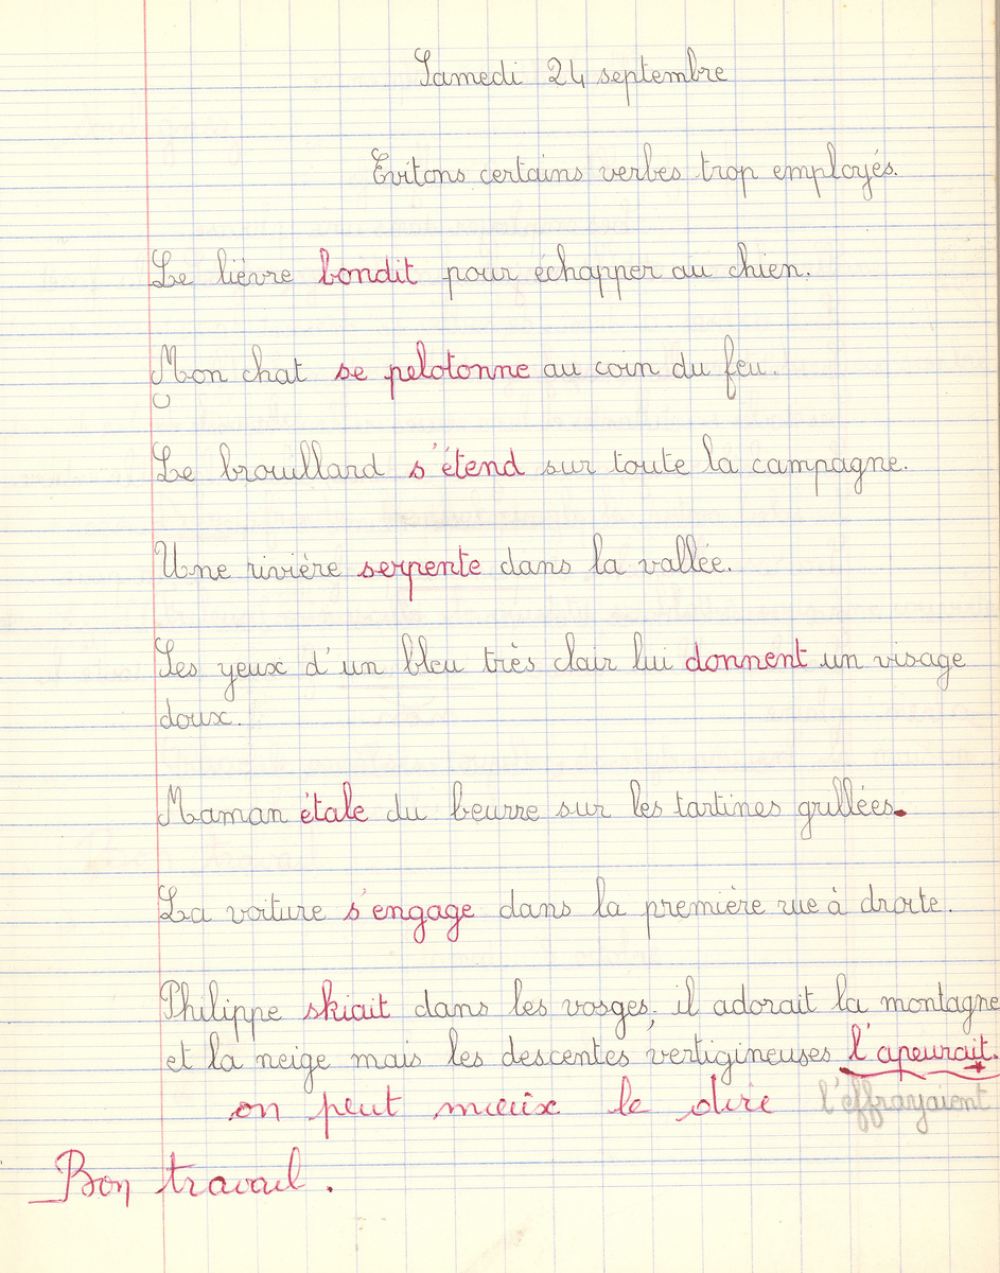 Samedi 24 septembre
Evitons certains verbes trop employés.
Le lièvre bondit pour échapper au chien.
Mon chat se pelotonne au coin du feu.
Le brouillard s'étend sur toute la campagne.
Une rivière serpente dans la vallée.
Ses yeux d'un bleu très clair lui donnent un visage
doux.
Maman étale du beurre sur les tartines grillées.
La voiture s'engage dans la première rue à droite.
Philippe skiait dans les vosges, il adorait la montagne
et la neige mais les descentes vertigineuses l'apeurait.
on peut mieux le dire l'effrayaient
Bon travail.